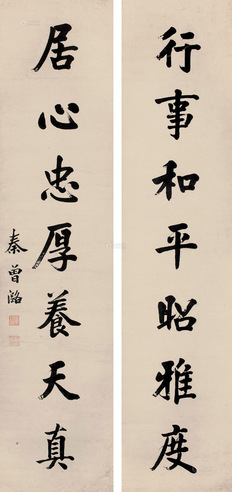 行事和平昭雅度
居心忠厚養天真
秦曾潞